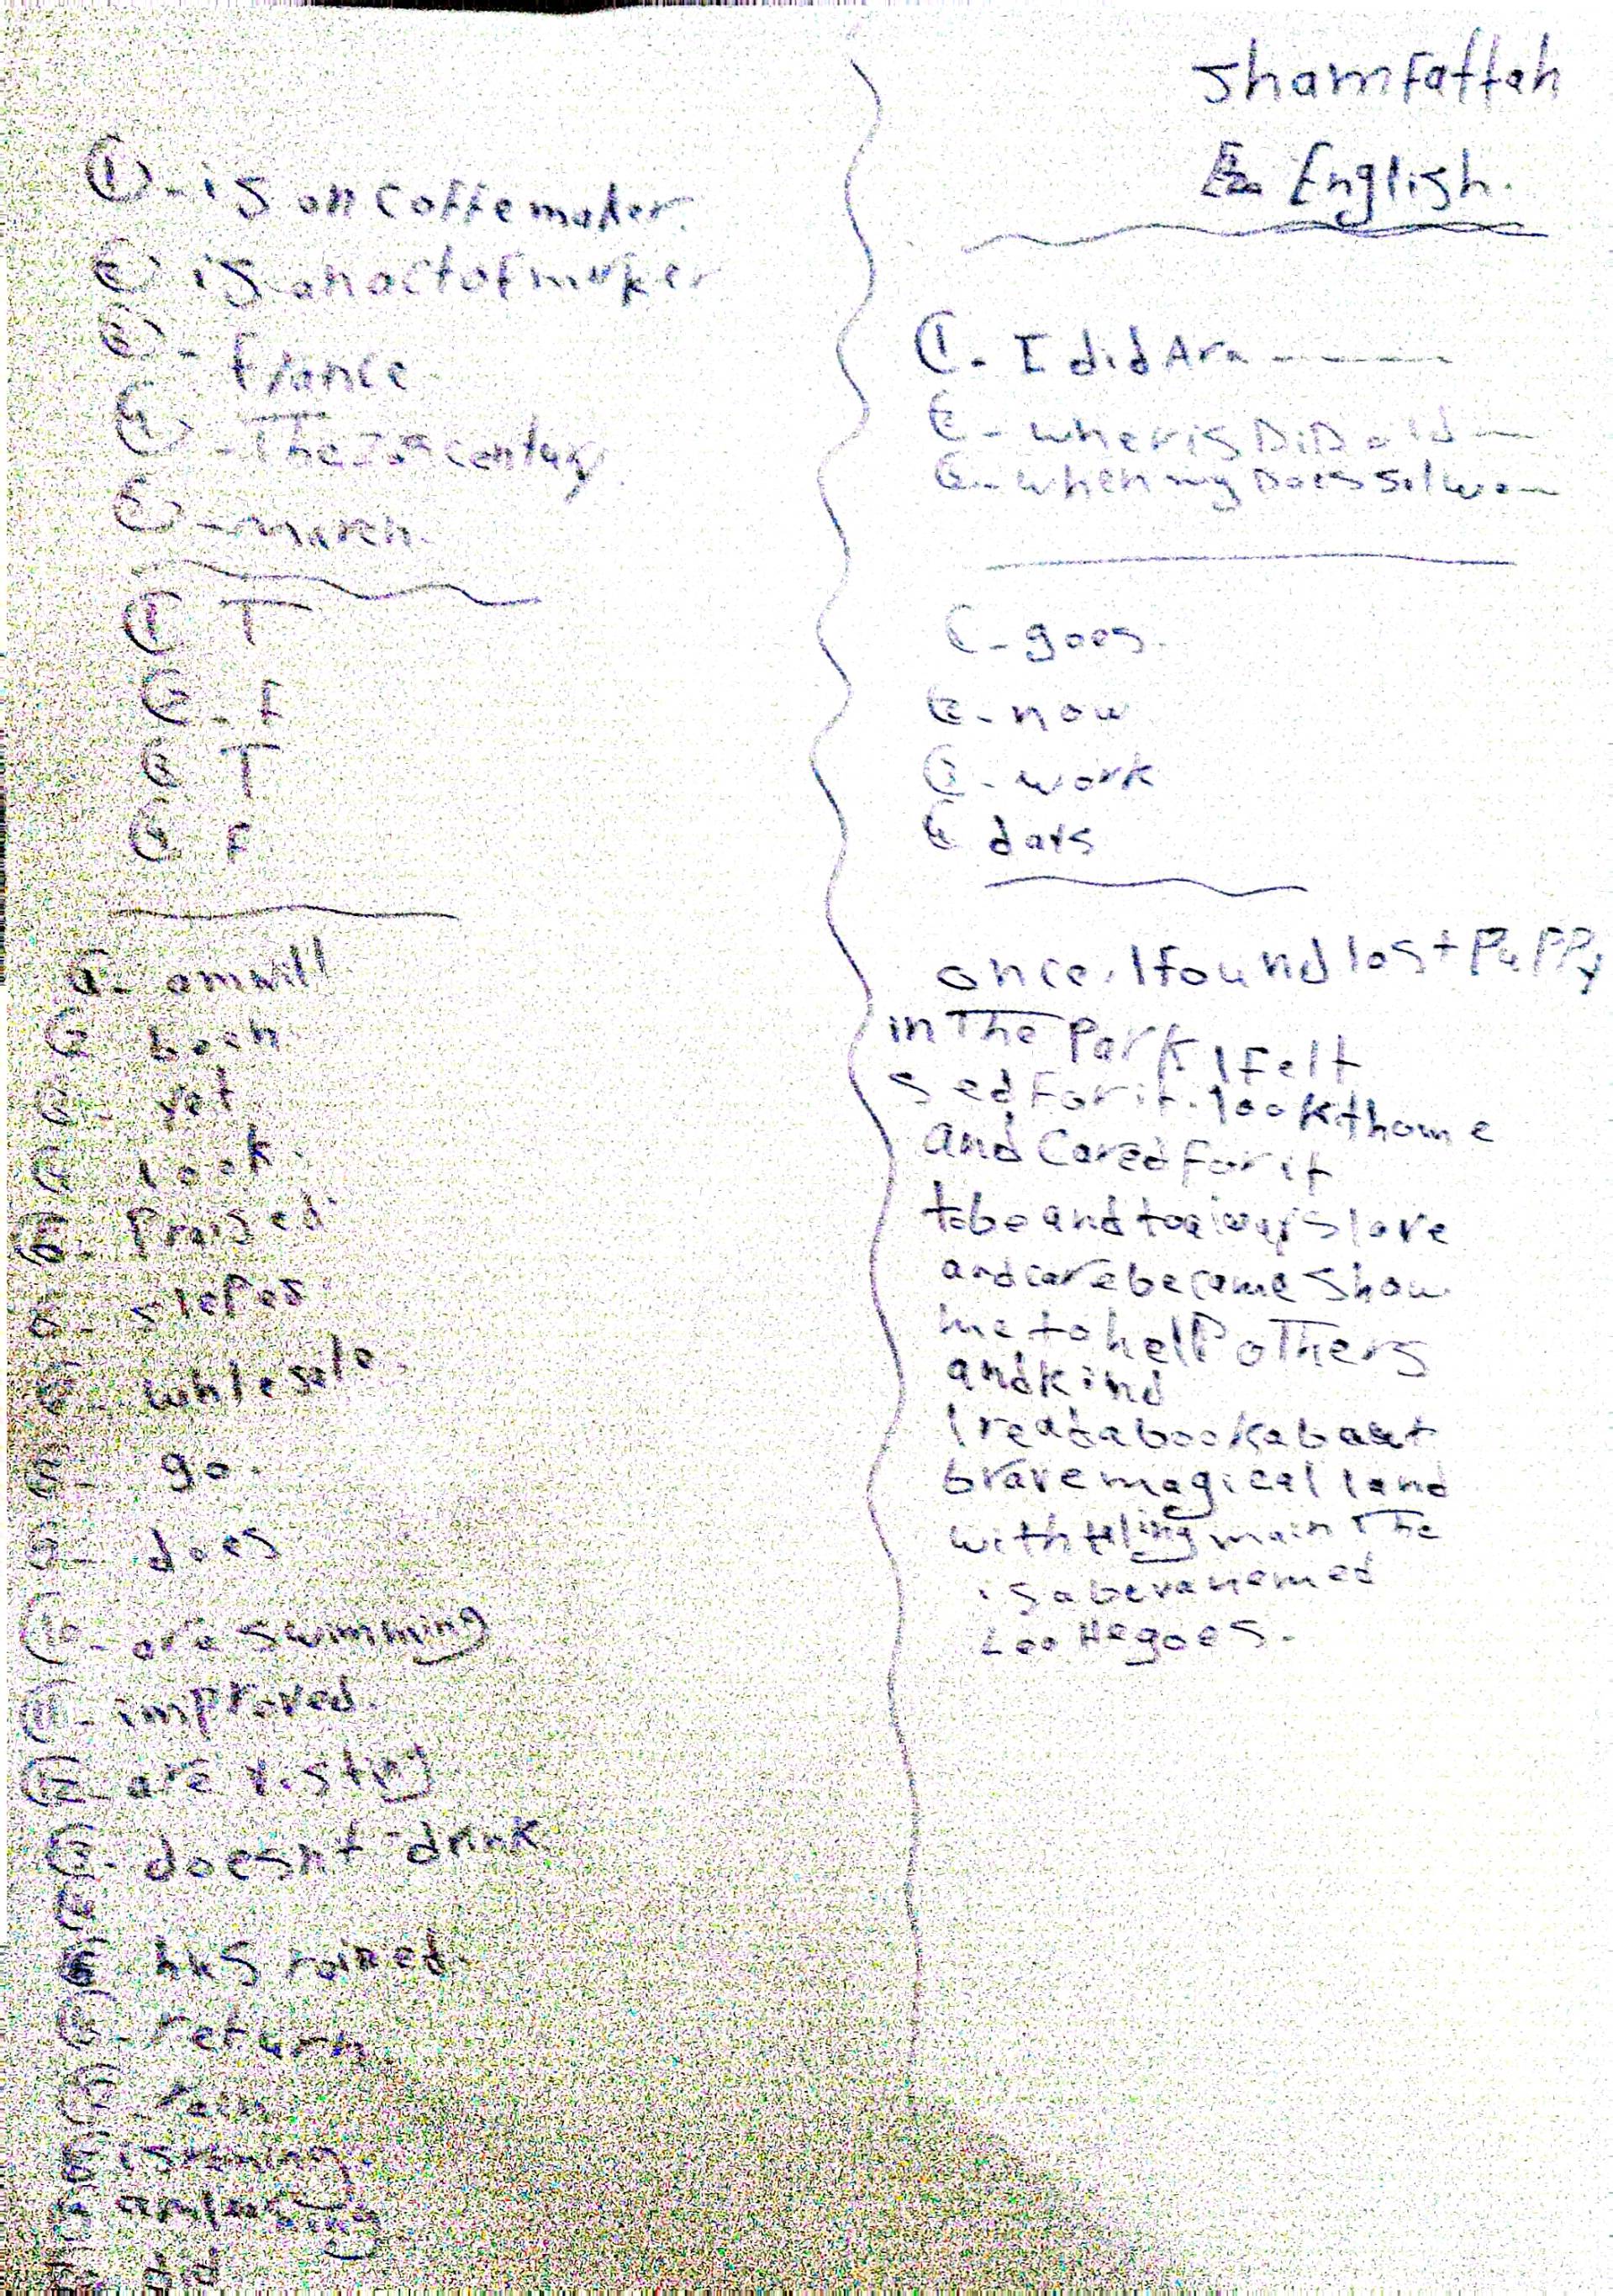 Sham Fattah
English.
① - is on coffe maker.
② is an act of maker
③ - France
④ - The 20th century
⑤ - march.
① T
② - F
③ T
④ F
① - am will
② been
③ - yet
④ look.
⑤ - Praised
⑥ - slepes
⑦ - whlesale.
⑧ - go.
⑨ - does
⑩ - are swimming
⑪ - improved.
⑫ - are
⑬ - doesnt drink
⑭
⑮ has rained.
⑯ - return
did
① - I did Ara
② - wher is DiD
③ - when my Does
① - goes.
② - now
③ - work
④ dars
once, I found lost PuPPy
in The Park, I Felt
sed For it. I ookthome
and Cared For it
to be and toaiways love
and care became show
me to helP oThers
and kind
I read a book about
brave magical land
with main The
is a nemed
Leo He goes.